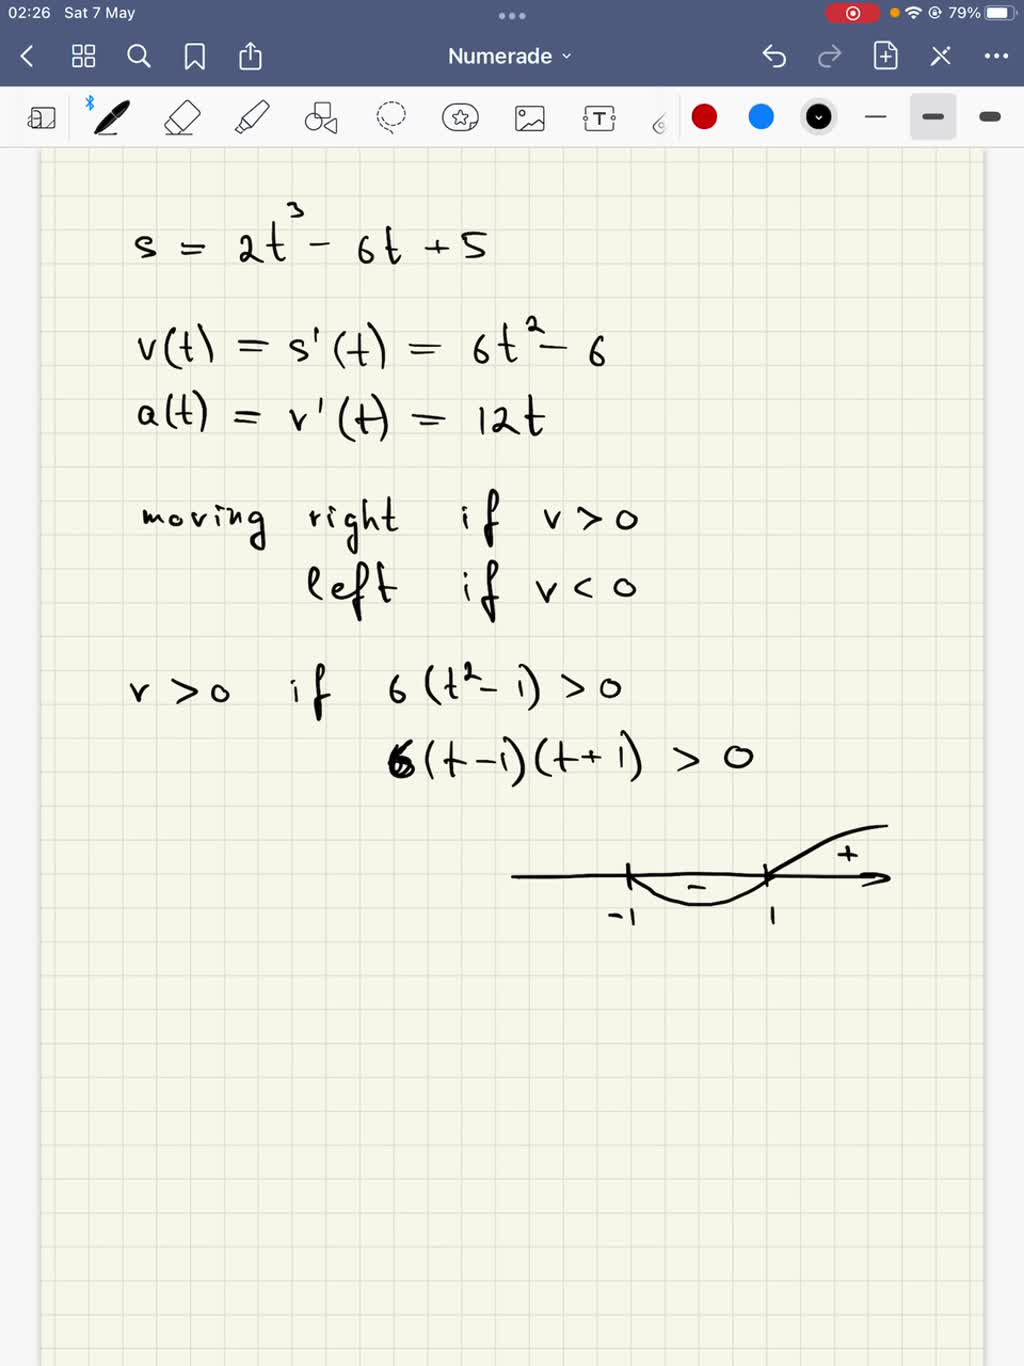 02:26 Sat 7 May 79%
Numerade
T
s = 2t³ - 6t + 5
v(t) = s'(t) = 6t² - 6
a(t) = v'(t) = 12t
moving right if v > 0
left if v < 0
v > 0 if 6(t² - 1) > 0
6(t-1)(t+1) > 0
- +
-1 1